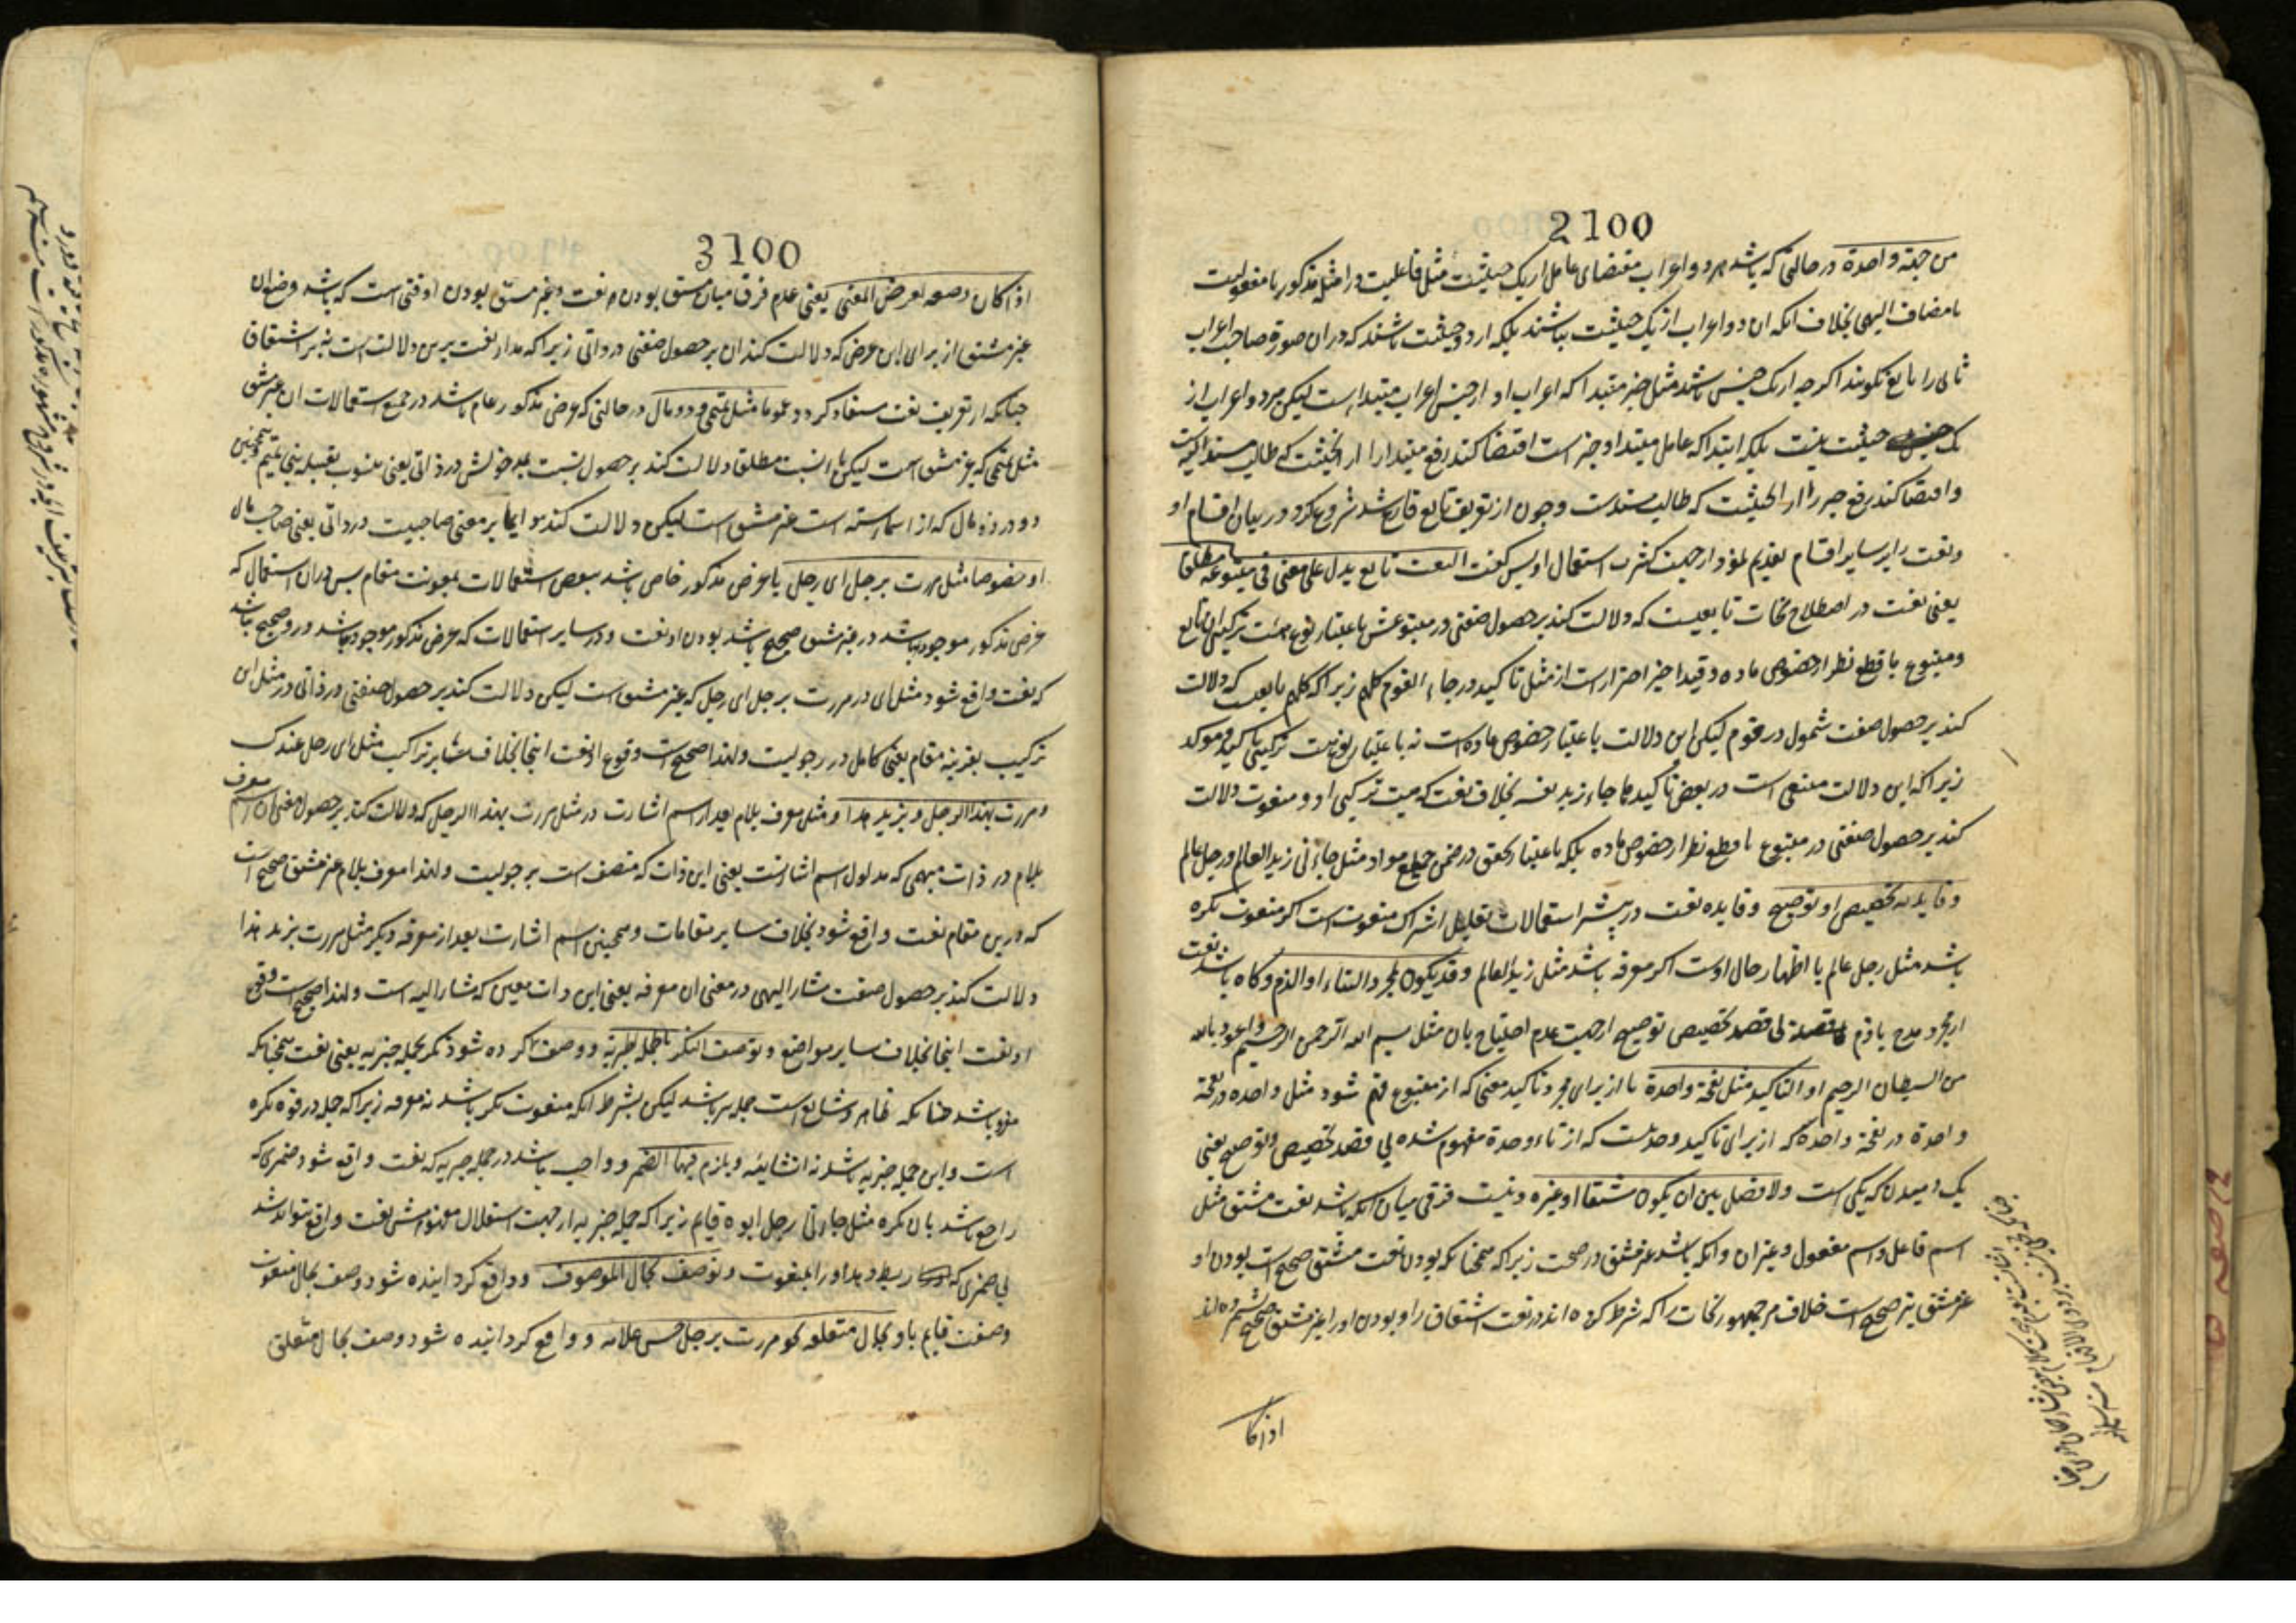 2100
من جهة واحدة در حالتی که باشد هر دو اعراب مقتضای عامل از یک حیثیت مثل فاعلیت در امثل مذکور یا مفعولیت
یا مضاف الیهی بخلاف انکه ان دو اعراب از یک حیثیت نباشند بلکه از دو حیثیت باشند که در ان صورة صاحب اعراب
ثانی را تابع نکویند اکرچه از یک جنس باشند مثل خبر مبتدا که اعراب او از جنس اعراب مبتدا است لیکن هر دو اعراب از
یک حیثیت نیست بلکه ابتدا که عامل مبتدا و خبر است اقتضا کند رفع مبتدا را از انحیثیت که طالب مسند الیه است
و اقتضا کند رفع خبر را از انحیثیت که طالب مسندست و چون از تعریف تابع فارغ شد شروع کرد در بیان اقسام او
و نعت را بر سایر اقسام تقدیم نمود از جهت کثرت استعمال او پس کفت النعت تابع یدل علی معنی فی متبوعه مطلقا
یعنی نعت در اصطلاح نحات تابعیست که دلالت کند بر حصول صفتی در متبوعش باعتبار نوع هیئت ترکیبی ان تابع
و متبوع با قطع نظر از خصوص ماده و قید اخیر احتراز است از مثل تاکید در جاء القوم کلهم زیرا که کلهم تابعیست که دلالت
کند بر حصول صفت شمول در قوم لیکن این دلالت باعتبار خصوص ماده است نه باعتبار نوع هیئت ترکیبی تاکید و موکد
زیرا که این دلالت منتفی است در بعض تاکیدها جاء زید نفسه بخلاف نعت که هیئت ترکیبی او و منعوت دلالت
کند بر حصول صفتی در متبوع با قطع نظر از خصوص ماده بلکه باعتبار تحقق در ضمن جمیع مواد مثل جاءنی زید العالم و رجل عالم
و فایدته تخصیص او توضیح و فایده نعت در بیشتر استعمالات تقلیل اشتراک منعوت است اکر منعوت نکره
باشد مثل رجل عالم یا اظهار حال اوست اکر معرفه باشد مثل زید العالم و قد یکون لمجرد الثناء او الذم و کاه باشد نعت
از مجرد مدح یا ذم بی قصد تخصیص توضیح از جهت عدم احتیاج بان مثل بسم الله الرحمن الرحیم و اعوذ بالله
من الشیطان الرجیم او التاکید مثل نفخة واحدة یا از برای مجرد تاکید معنی که از متبوع فهم شود مثل واحده در نفخة
واحدة در نفخة واحدة که از برای تاکید وحدتست که از تاء وحدة مفهوم شده بی قصد تخصیص و توضیح یعنی
یک دمیدن که یکی است ولا فصل بین ان یکون مشتقا او غیره و نیست فرقی میان انکه باشد نعت مشتق مثل
اسم فاعل و اسم مفعول و غیر ان و انکه باشد غیر مشتق در صحت زیرا که همچنانکه بودن نعت مشتق صحیح است بودن او
غیر مشتق نیز صحیح است خلاف مر جمهور نحات را که شرط کرده اند در نعت اشتقاق را و بودن او را غیر مشتق صحیح نشمرده اند
اذا کا
3100
اذا کان وضعه لغرض المعنی یعنی عدم فرق میان مشتق بودن نعت و غیر مشتق بودن او وقتی است که باشد وضع ان
غیر مشتق از برای این غرض که دلالت کند ان بر حصول صفتی در ذاتی زیرا که مدار نعت برین دلالت است نه بر اشتقاق
چنانکه از تعریف نعت مستفاد کردد عموما مثل تمیمی و ذو مال در حالتی که غرض مذکور عام باشد در جمیع استعمالات ان غیر مشتق
مثل تمیمی که غیر مشتق است لیکن با نسبت مطلقا دلالت کند بر حصول نسبت بمدخولش در ذاتی یعنی منسوب بقبیله بنی تمیم و همچنین
ذو در ذو مال که از اسماء سته است غیر مشتق است لیکن دلالت کند دایما بر معنی صاحبیت در ذاتی یعنی صاحب مال
او خصوصا مثل مررت برجل ای رجل یا غرض مذکور خاص باشد ببعض استعمالات بمعونت مقام پس در ان استعمال که
غرض مذکور موجود باشد در غیر مشتق صحیح باشد بودن او نعت و در سایر استعمالات که غرض مذکور موجود نباشد در و صحیح نباشد
که نعت واقع شود مثل ای در مررت برجل ای رجل که غیر مشتق است لیکن دلالت کند بر حصول صفتی در ذاتی در مثل این
ترکیب بقرینه مقام یعنی کامل در رجولیت و لهذا صحیح است وقوع او نعت اینجا بخلاف سایر تراکیب مثل ای رجل عندک
و مررت بهذا الرجل و بزید هذا و مثل معرف بلام بعد از اسم اشارت در مثل مررت بهذا الرجل که دلالت کند بر حصول معنی ان اسم معرف
بلام در ذات مبهمی که مدلول اسم اشارتست یعنی این ذات که متصف است برجولیت و لهذا معرف بلام غیر مشتق صحیح است
که درین مقام نعت واقع شود بخلاف سایر مقامات و همچنین اسم اشارت بعد از معرفه دیکر مثل مررت بزید هذا
دلالت کند بر حصول صفت مشار الیهی در معنی ان معرفه یعنی این ذات معین که مشار الیه است و لهذا صحیح است وقوع
او نعت اینجا بخلاف سایر مواضع و توصف النکرة بالجملة الخبریة و وصف کرده شود نکره بجمله خبریه یعنی نعت همچنانکه
مفرد باشد چنانکه ظاهر و شایع است جمله نیز باشد لیکن بشرط انکه منعوت نکره باشد نه معرفه زیرا که جمله در قوه نکره
است و این جمله خبریه باشد نه انشائیه و یلزم فیها الضمیر و واجب باشد در جمله خبریه که نعت واقع شود ضمیری که
راجع باشد بان نکره مثل جاءنی رجل ابوه قایم زیرا که جمله خبریه از جهت استقلال مفهومش نعت واقع نتواند شد
بی ضمیری که ربط دهد او را بمنعوت و توصف بحال الموصوف و واقع کردانیده شود وصف بحال منعوت
وصفت قایم باو و بحال متعلقه نحو مررت برجل حسن غلامه و واقع کردانیده شود وصف بحال متعلق